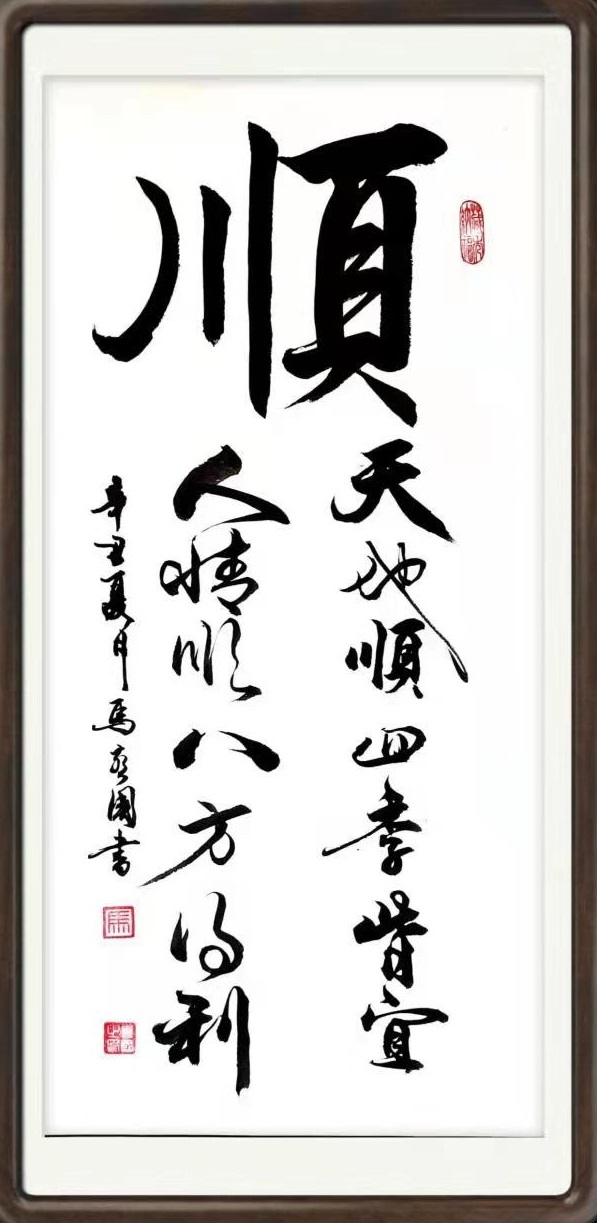 順
天地順四季皆宜
人情順八方得利
辛丑夏月馬爱國書
馬